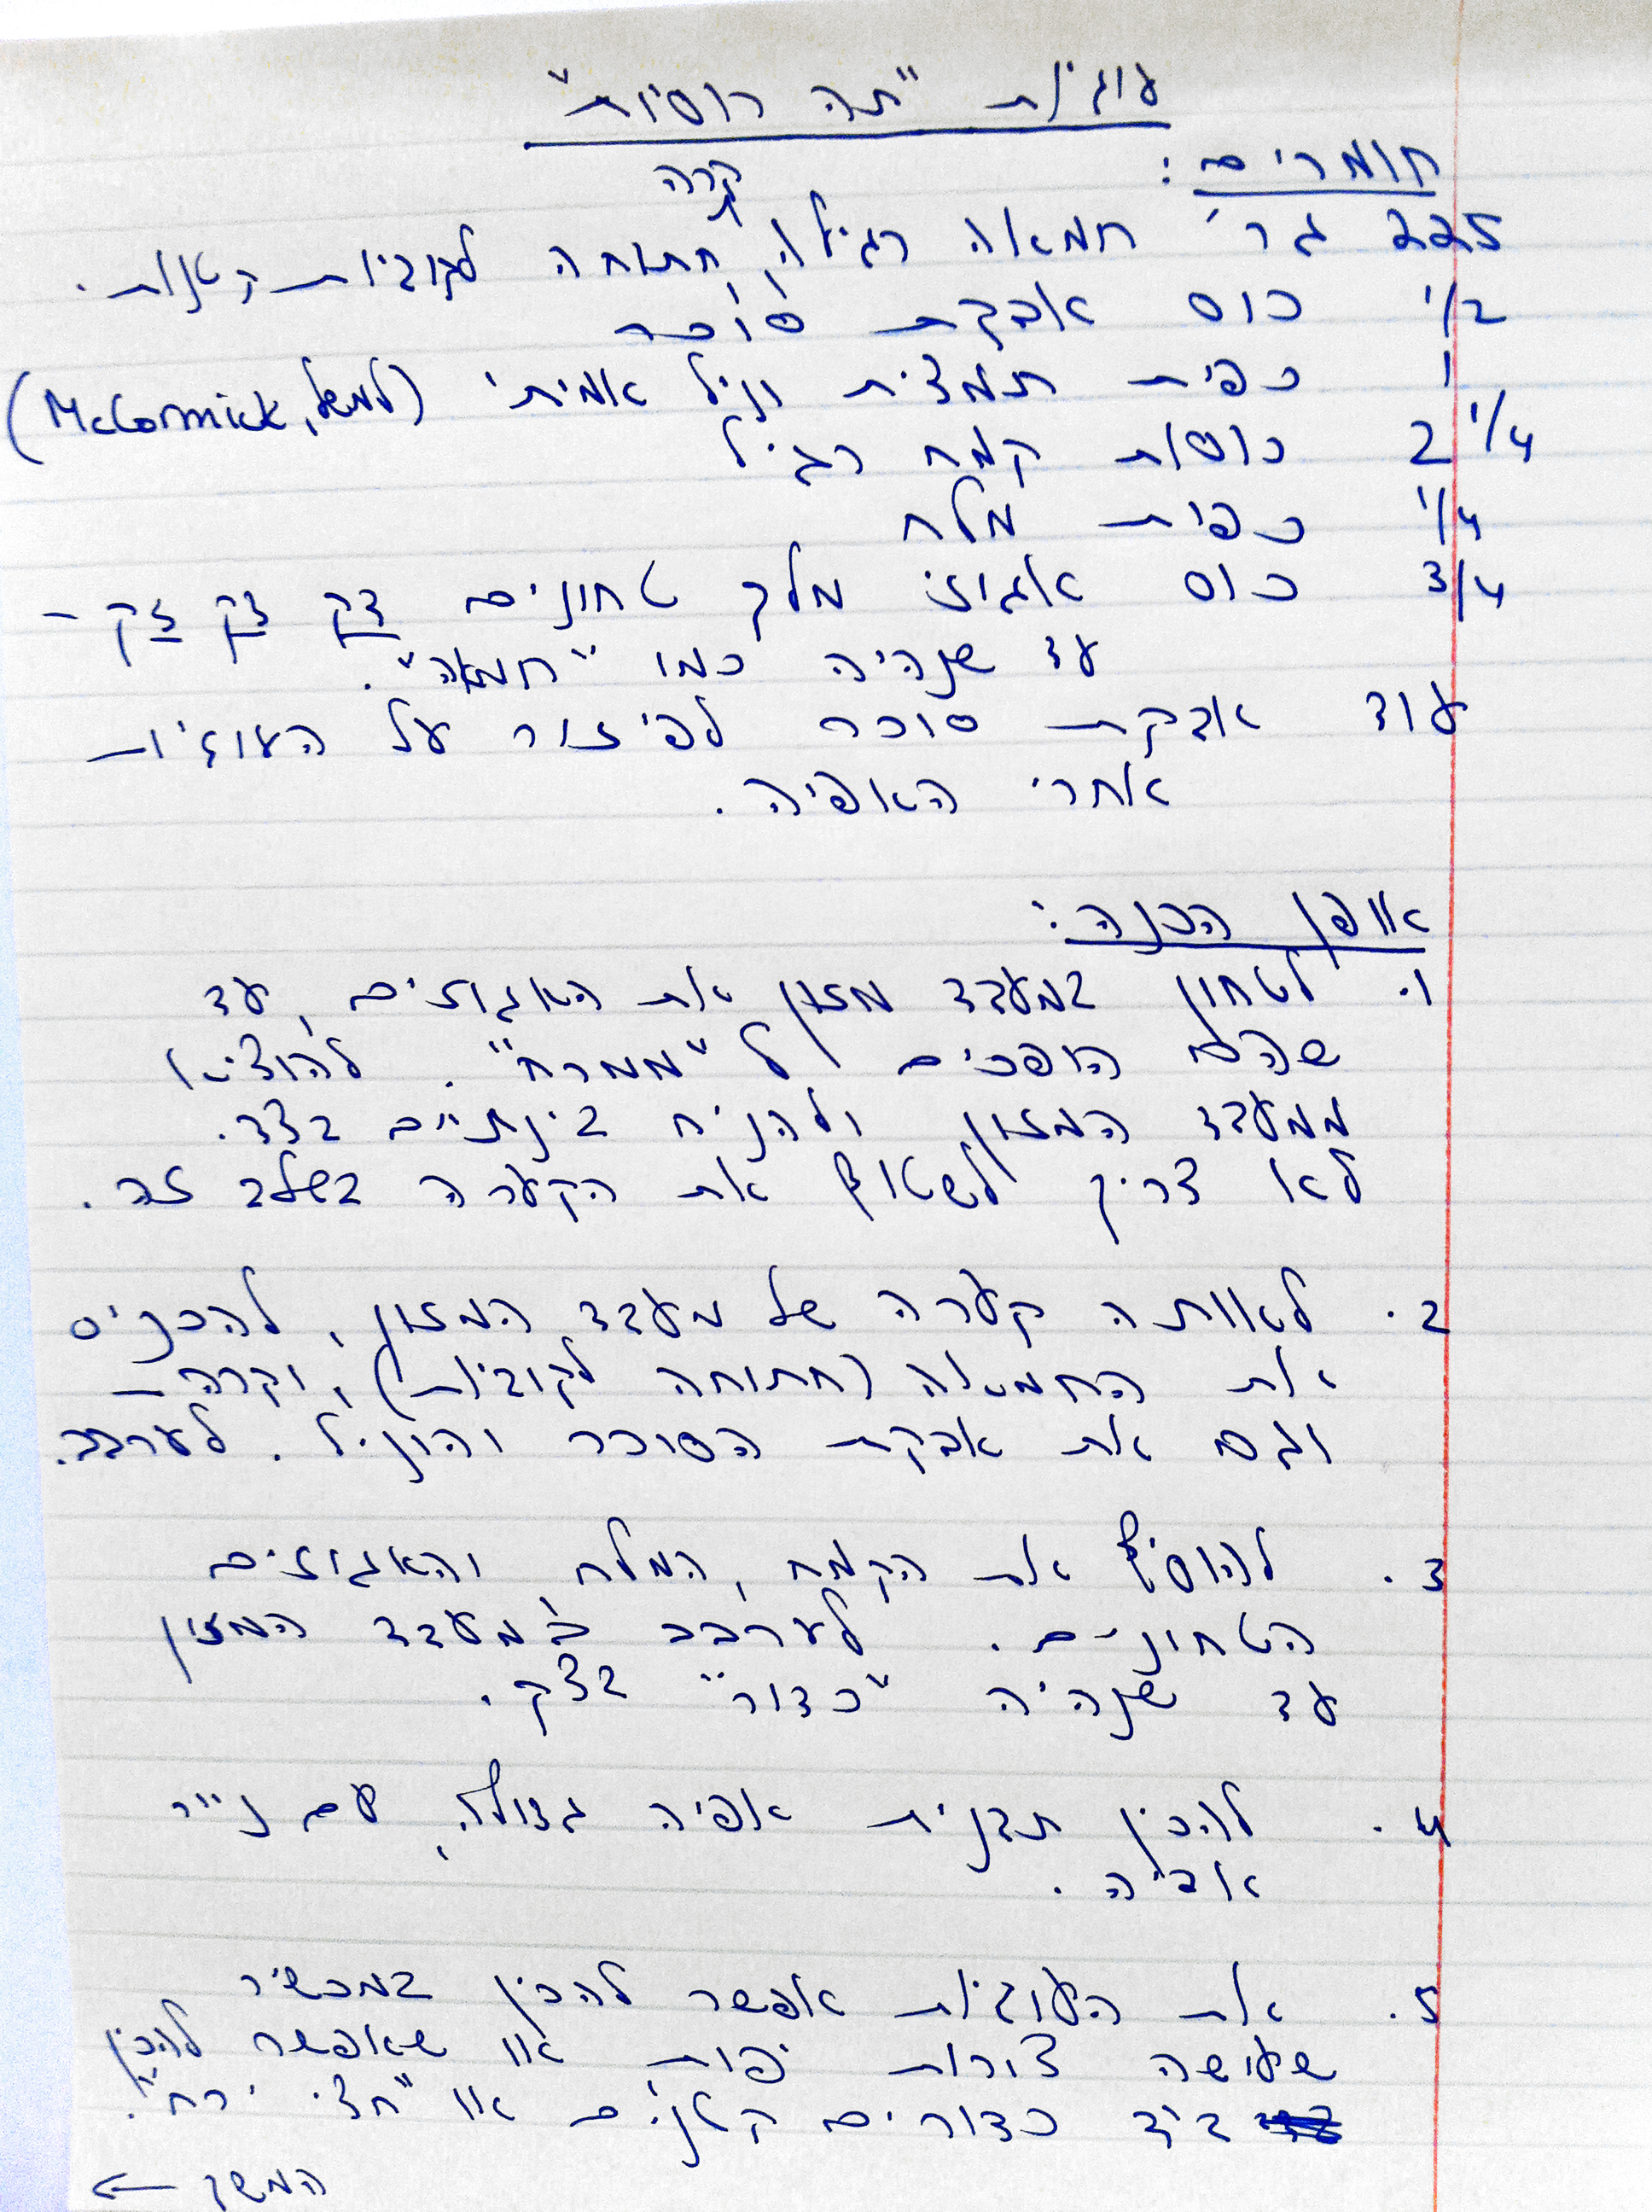 עוגיות "תה רוסיות"
חומרים:
קרה
225 גר' חמאה רגילה, חתוכה לקוביות קטנות.
1/2 כוס אבקת סוכר
1 כפית תמצית וניל אמיתי (למשל, McCormick)
2 1/4 כוסות קמח רגיל
1/4 כפית מלח
3/4 כוס אגוזי מלך טחונים דק דק דק -
עד שנהיה כמו "חמאה".
עוד אבקת סוכר לפיזור על העוגיות
אחרי האפיה.
אופן הכנה:
1. לטחון במעבד מזון את האגוזים, עד
שהם הופכים ל"ממרח". להוציא
ממעבד המזון ולהניח בינתיים בצד.
לא צריך לשטוף את הקערה בשלב זה.
2. לאותה קערה של מעבד המזון, להכניס
את החמאה (חתוכה לקוביות), וקרה -
וגם את אבקת הסוכר והוניל. לערבב.
3. להוסיף את הקמח, המלח והאגוזים
הטחונים. לערבב במעבד המזון
עד שנהיה "כדור" בצק.
4. להכין תבנית אפיה גדולה, עם נייר
אפיה.
5. את העוגיות אפשר להכין במכשיר
שעושה צורות יפות או שאפשר להכין
ביד כדורים קטנים או "חצי ירח".
המשך ←